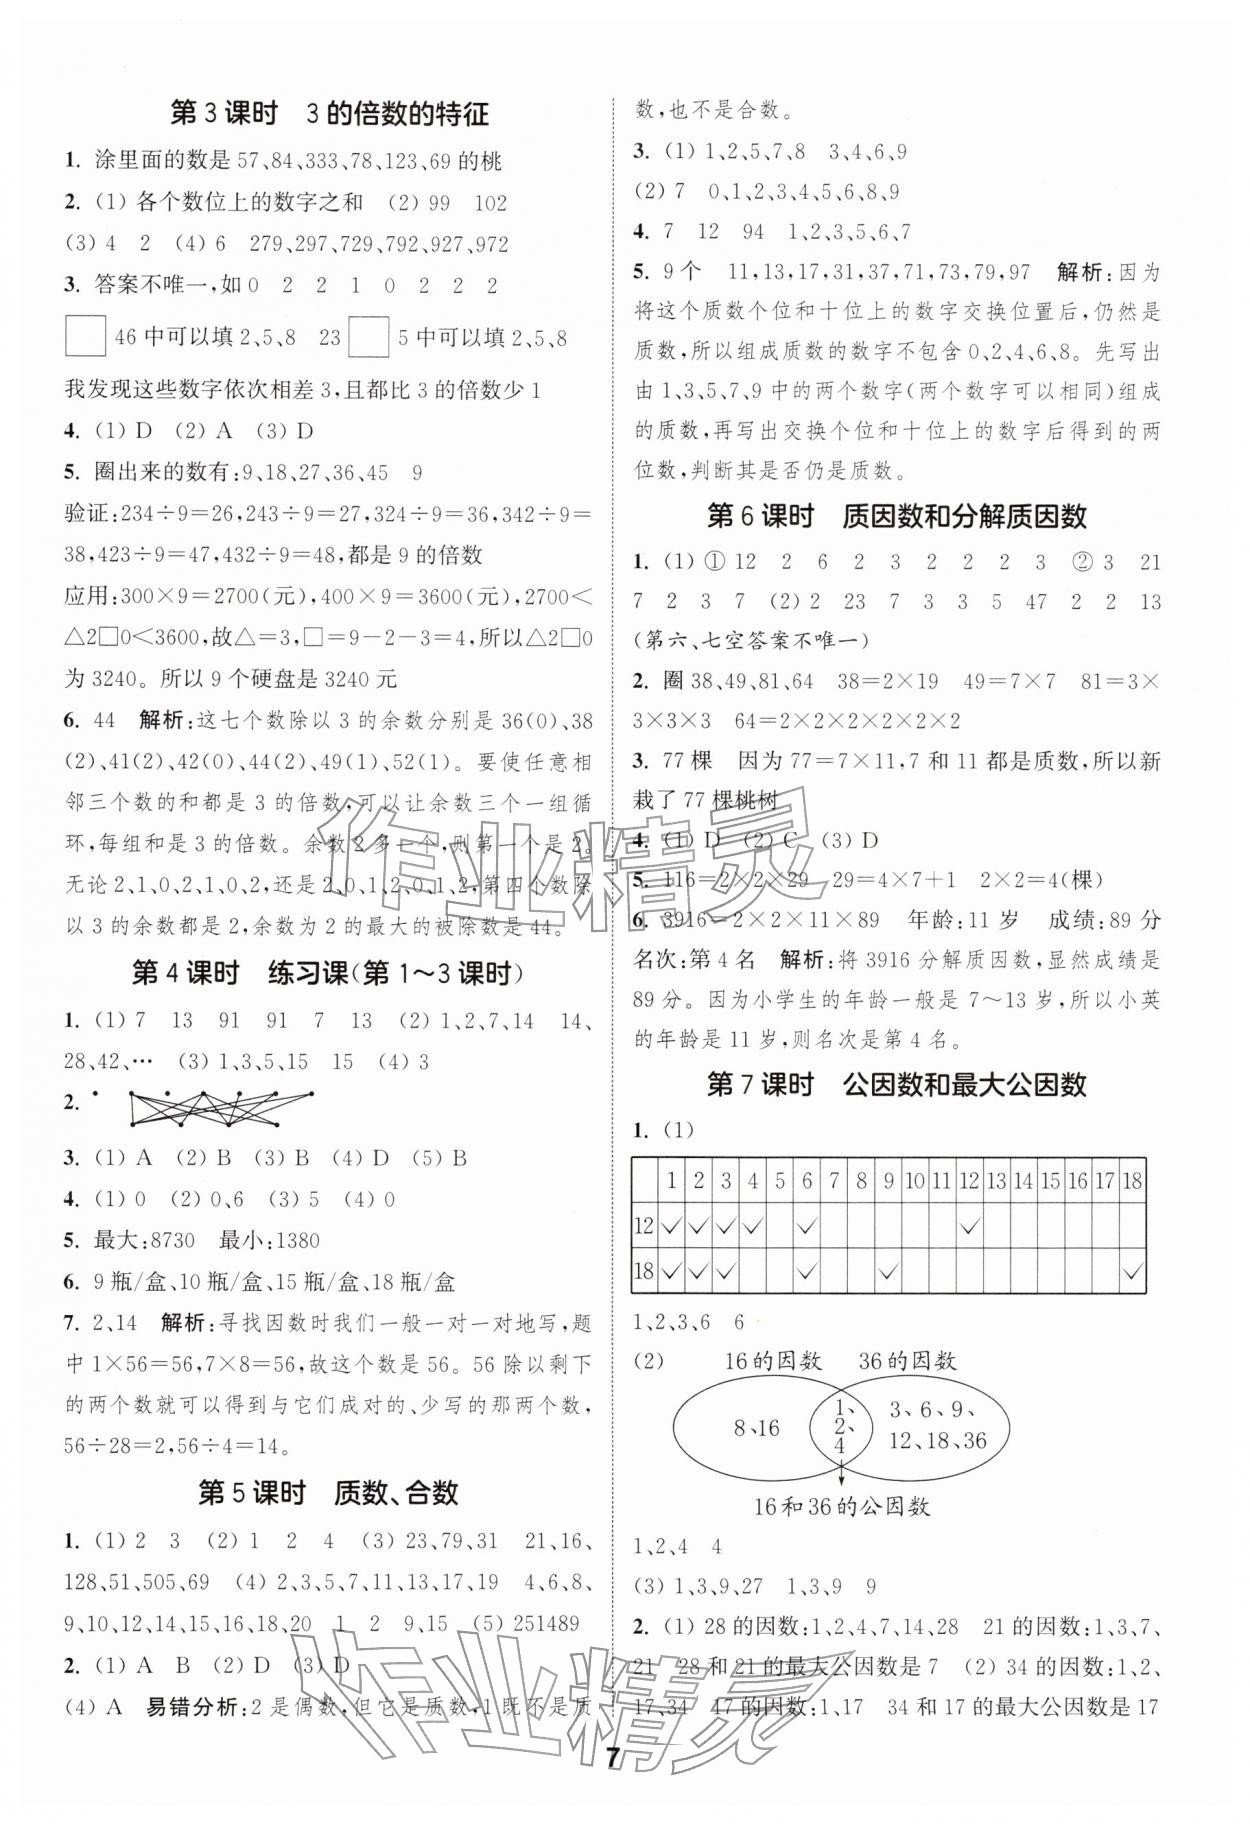 第3课时 3的倍数的特征
1. 涂里面的数是57、84、333、78、123、69的桃
2. (1) 各个数位上的数字之和 (2) 99 102
(3) 4 2 (4) 6 279、297、729、792、927、972
3. 答案不唯一,如0 2 2 1 0 2 2 2
□46中可以填2、5、8 23□5中可以填2、5、8
我发现这些数字依次相差3,且都比3的倍数少1
4. (1) D (2) A (3) D
5. 圈出来的数有:9、18、27、36、45 9
验证:234÷9=26,243÷9=27,324÷9=36,342÷9=
38,423÷9=47,432÷9=48,都是9的倍数
应用:300×9=2700(元),400×9=3600(元),2700<
△2□0<3600,故△=3,□=9-2-3=4,所以△2□0
为3240。所以9个硬盘是3240元
6. 44 解析:这七个数除以3的余数分别是36(0)、38
(2)、41(2)、42(0)、44(2)、49(1)、52(1)。要使任意相
邻三个数的和都是3的倍数,可以让余数三个一组循
环,每组和是3的倍数。余数2多一个,则第一个是2。
无论2、1、0、2、1、0、2,还是2、0、1、2、0、1、2,第四个数除
以3的余数都是2,余数为2的最大的被除数是44。
第4课时 练习课(第1~3课时)
1. (1) 7 13 91 91 7 13 (2) 1、2、7、14 14、
28、42、… (3) 1、3、5、15 15 (4) 3
2.
3. (1) A (2) B (3) B (4) D (5) B
4. (1) 0 (2) 0、6 (3) 5 (4) 0
5. 最大:8730 最小:1380
6. 9瓶/盒、10瓶/盒、15瓶/盒、18瓶/盒
7. 2、14 解析:寻找因数时我们一般一对一对地写,题
中1×56=56,7×8=56,故这个数是56。56除以剩下
的两个数就可以得到与它们成对的、少写的那两个数,
56÷28=2,56÷4=14。
第5课时 质数、合数
1. (1) 2 3 (2) 1 2 4 (3) 23、79、31 21、16、
128、51、505、69 (4) 2、3、5、7、11、13、17、19 4、6、8、
9、10、12、14、15、16、18、20 1 2 9、15 (5) 251489
2. (1) A B (2) D (3) D
(4) A 易错分析:2是偶数,但它是质数,1既不是质
数,也不是合数。
3. (1) 1、2、5、7、8 3、4、6、9
(2) 7 0、1、2、3、4、5、6、8、9
4. 7 12 94 1、2、3、5、6、7
5. 9个 11,13,17,31,37,71,73,79,97 解析:因为
将这个质数个位和十位上的数字交换位置后,仍然是
质数,所以组成质数的数字不包含0、2、4、6、8。先写出
由1、3、5、7、9中的两个数字(两个数字可以相同)组成
的质数,再写出交换个位和十位上的数字后得到的两
位数,判断其是否仍是质数。
第6课时 质因数和分解质因数
1. (1) ① 12 2 6 2 3 2 2 2 3 ② 3 21
7 2 3 7 (2) 2 23 7 3 3 5 47 2 2 13
(第六、七空答案不唯一)
2. 圈38、49、81、64 38=2×19 49=7×7 81=3×
3×3×3 64=2×2×2×2×2×2
3. 77棵 因为77=7×11,7和11都是质数,所以新
栽了77棵桃树
4. (1) D (2) C (3) D
5. 116=2×2×29 29=4×7+1 2×2=4(棵)
6. 3916=2×2×11×89 年龄:11岁 成绩:89分
名次:第4名 解析:将3916分解质因数,显然成绩是
89分。因为小学生的年龄一般是7~13岁,所以小英
的年龄是11岁,则名次是第4名。
第7课时 公因数和最大公因数
1. (1)
1 2 3 4 5 6 7 8 9 10 11 12 13 14 15 16 17 18
12 ✓ ✓ ✓ ✓ ✓ ✓
18 ✓ ✓ ✓ ✓ ✓ ✓
1、2、3、6 6
(2) 16的因数 36的因数
8、16 1、2、4 3、6、9、12、18、36
16和36的公因数
1、2、4 4
(3) 1、3、9、27 1、3、9 9
2. (1) 28的因数:1、2、4、7、14、28 21的因数:1、3、7、
21 28和21的最大公因数是7 (2) 34的因数:1、2、
17、34 17的因数:1、17 34和17的最大公因数是17
7
作业精灵
作业精灵